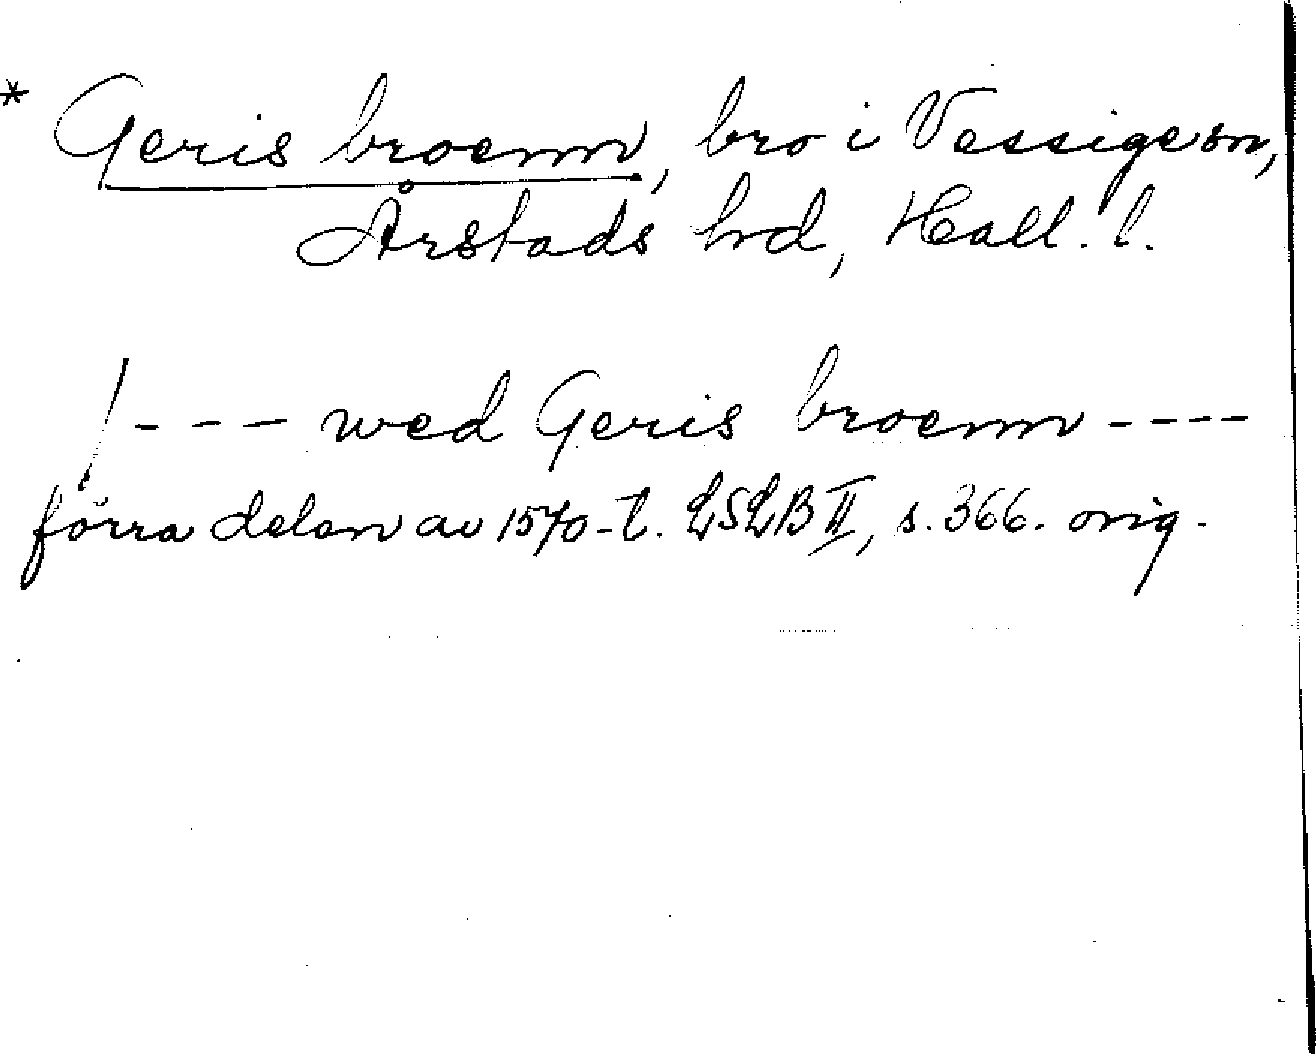 * Geris broenn, bro i Vessige sn,
Årstads hd, Hall. l.
/ - - - wed Geris broenn - - - -
förra delen av 1570-t. LSLB II, s. 366. orig.